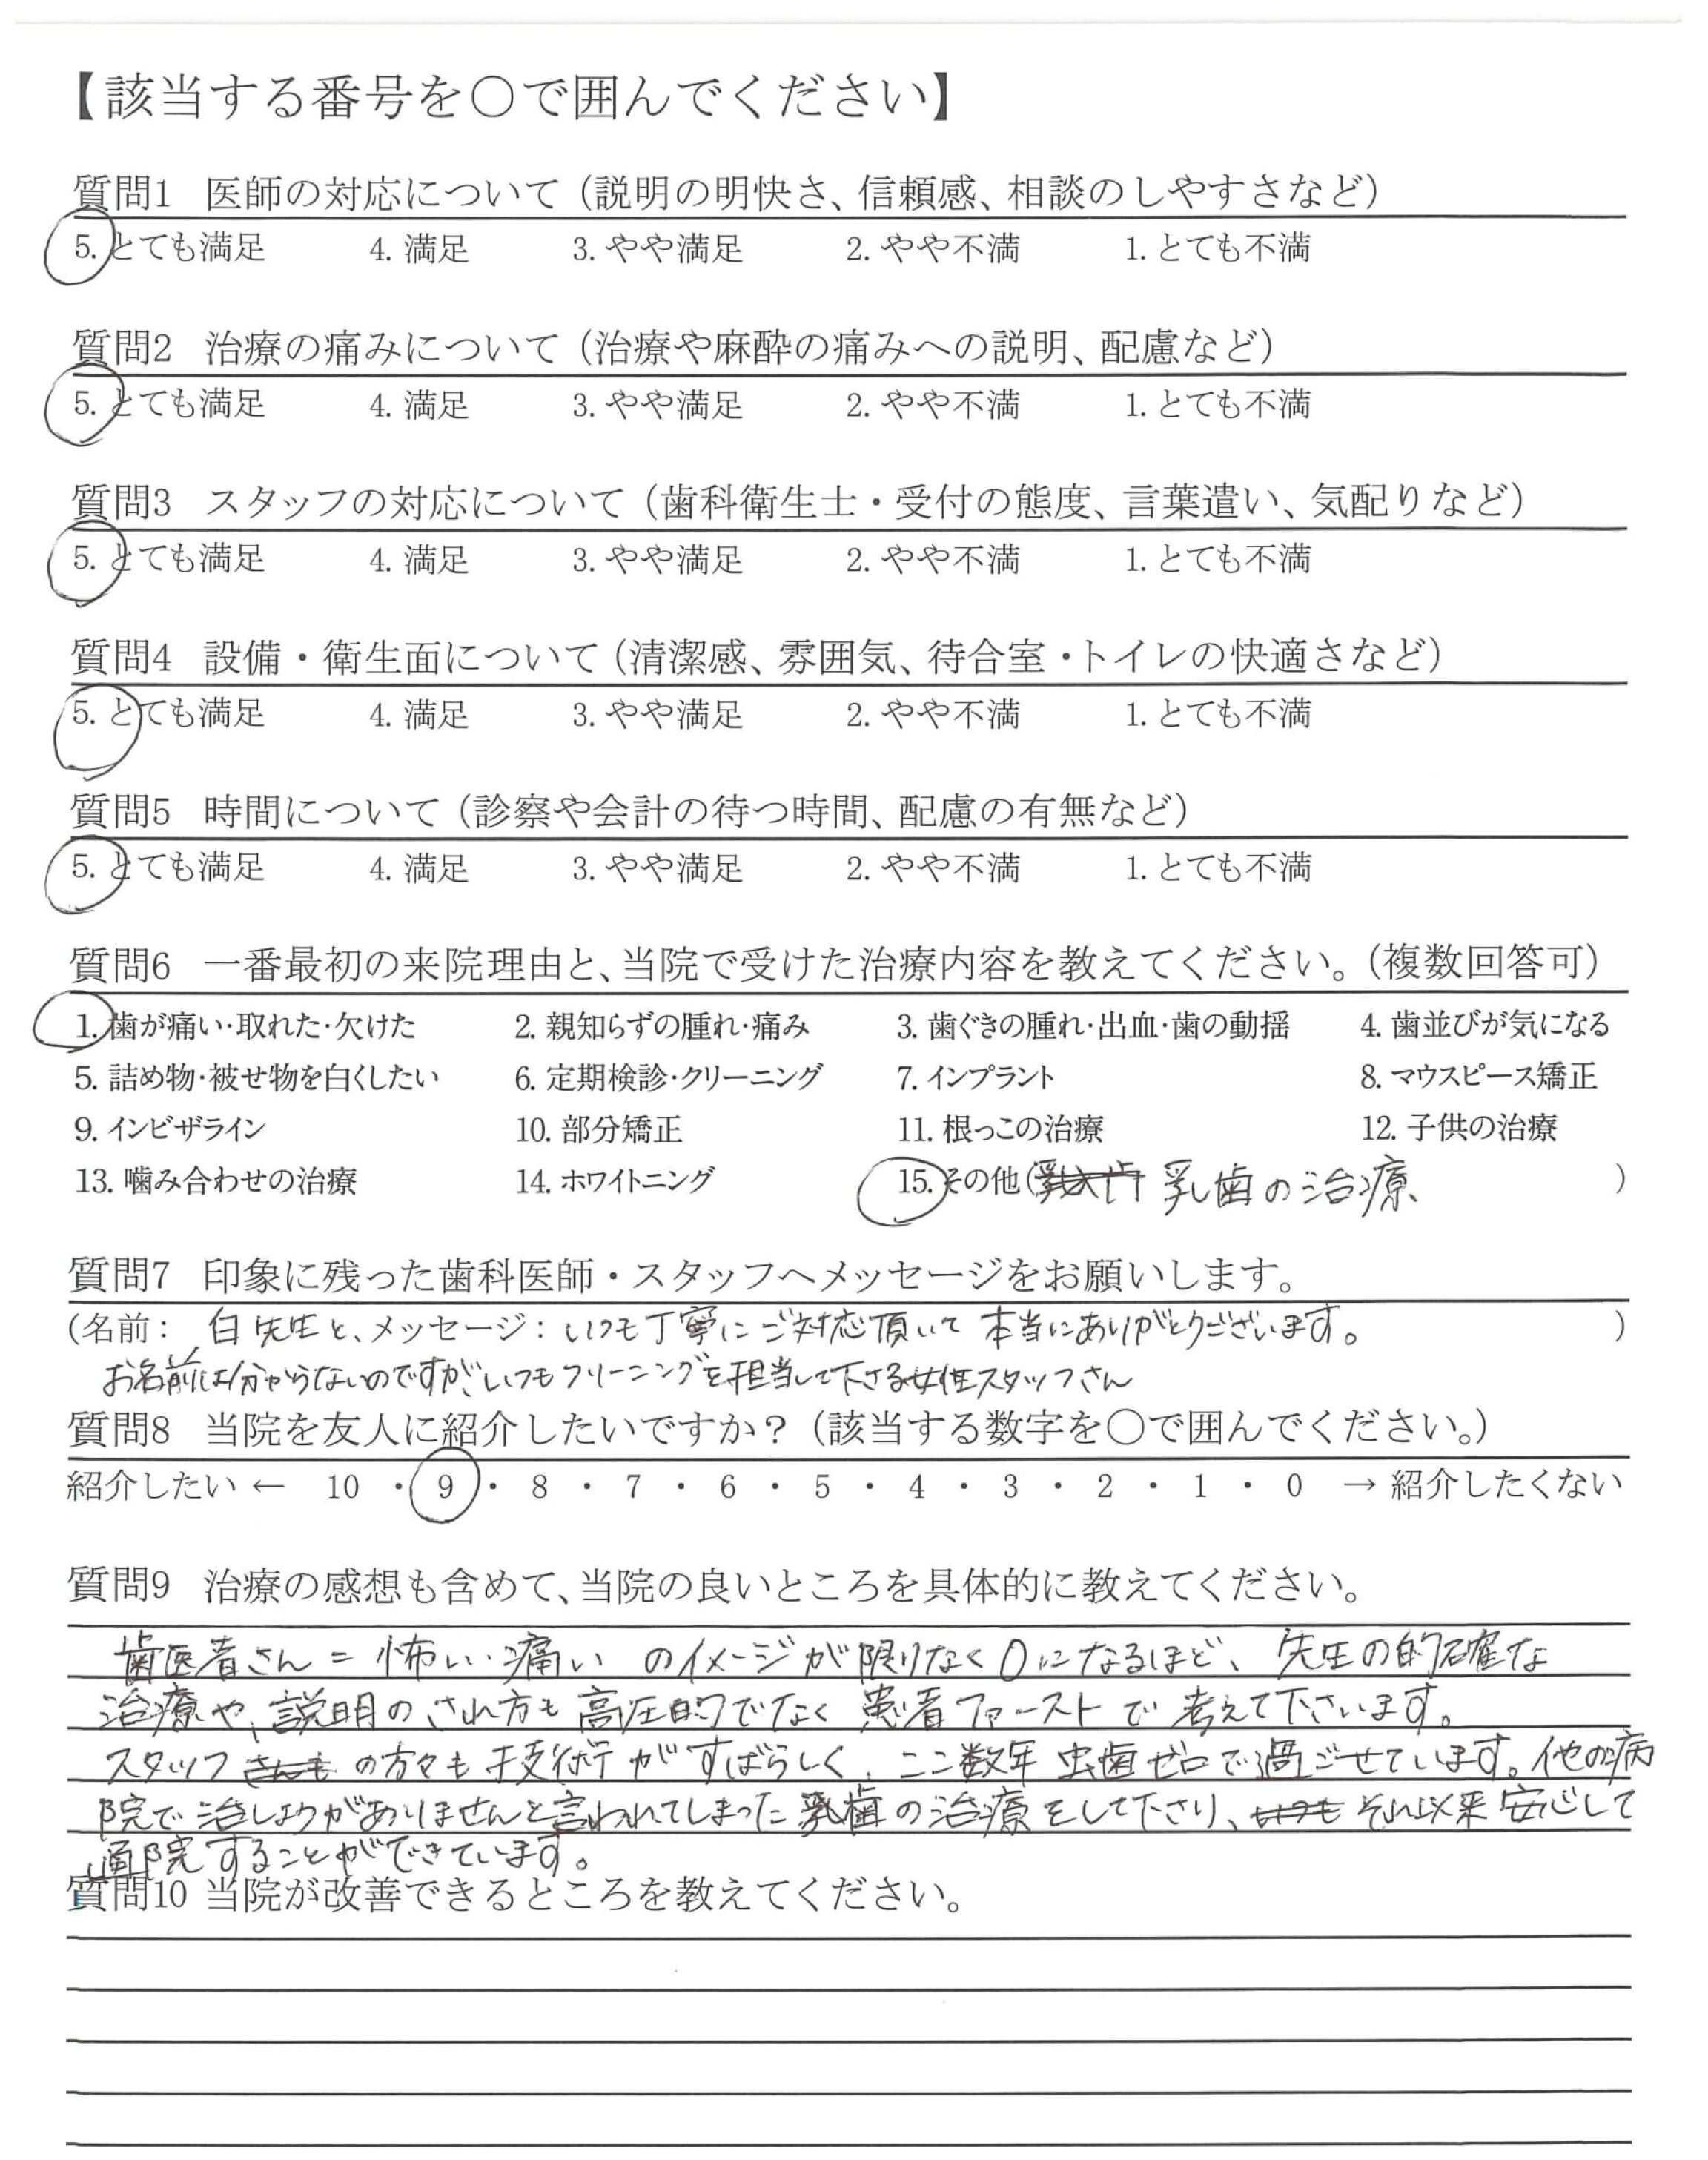 【該当する番号を○で囲んでください】
質問1 医師の対応について（説明の明快さ、信頼感、相談のしやすさなど）
5. とても満足 4. 満足 3. やや満足 2. やや不満 1. とても不満
質問2 治療の痛みについて（治療や麻酔の痛みへの説明、配慮など）
5. とても満足 4. 満足 3. やや満足 2. やや不満 1. とても不満
質問3 スタッフの対応について（歯科衛生士・受付の態度、言葉遣い、気配りなど）
5. とても満足 4. 満足 3. やや満足 2. やや不満 1. とても不満
質問4 設備・衛生面について（清潔感、雰囲気、待合室・トイレの快適さなど）
5. とても満足 4. 満足 3. やや満足 2. やや不満 1. とても不満
質問5 時間について（診察や会計の待つ時間、配慮の有無など）
5. とても満足 4. 満足 3. やや満足 2. やや不満 1. とても不満
質問6 一番最初の来院理由と、当院で受けた治療内容を教えてください。（複数回答可）
1. 歯が痛い・取れた・欠けた 2. 親知らずの腫れ・痛み 3. 歯ぐきの腫れ・出血・歯の動揺 4. 歯並びが気になる
5. 詰め物・被せ物を白くしたい 6. 定期検診・クリーニング 7. インプラント 8. マウスピース矯正
9. インビザライン 10. 部分矯正 11. 根っこの治療 12. 子供の治療
13. 噛み合わせの治療 14. ホワイトニング 15. その他（乳歯の治療、）
質問7 印象に残った歯科医師・スタッフへメッセージをお願いします。
（名前： 白先生と、メッセージ：いつも丁寧にご対応頂いて本当にありがとうございます。）
お名前は分からないのですが、いつもクリーニングを担当して下さる女性スタッフさん
質問8 当院を友人に紹介したいですか？（該当する数字を○で囲んでください。）
紹介したい ← 10 ・ 9 ・ 8 ・ 7 ・ 6 ・ 5 ・ 4 ・ 3 ・ 2 ・ 1 ・ 0 → 紹介したくない
質問9 治療の感想も含めて、当院の良いところを具体的に教えてください。
歯医者さん＝怖い・痛い のイメージが限りなく0になるほど、先生の的確な
治療や、説明のされ方も高圧的でなく患者ファーストで考えて下さいます。
スタッフの方々も技術がすばらしく、ここ数年虫歯ゼロで過ごせています。他の病
院で治しようがありませんと言われてしまった乳歯の治療をして下さり、それ以来安心して
通院することができています。
質問10 当院が改善できるところを教えてください。